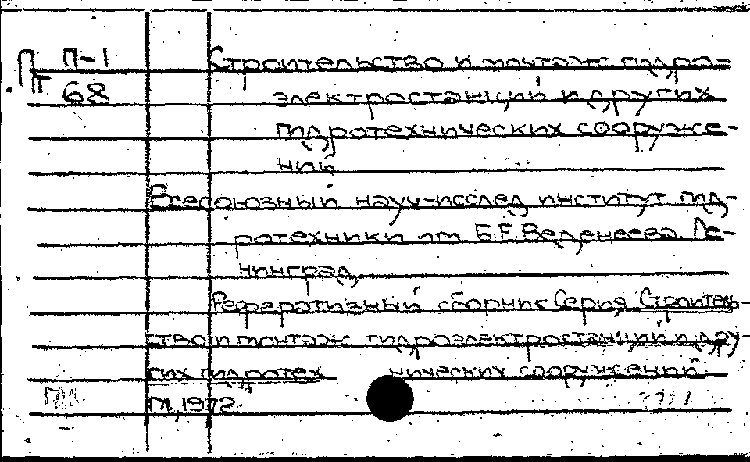 П П-1 Строительство и монтаж гидро-
Т 68 электростанций и других
гидротехнических сооруже-
ний
Всесоюзный науч-исслед институт гид-
ротехники им Б.Е.Веденеева Ле-
нинград
Реферативный сборник Серия Строитель-
ство и монтаж гидроэлектростанций и дру-
гих гидротех нических сооружений
М, 1972